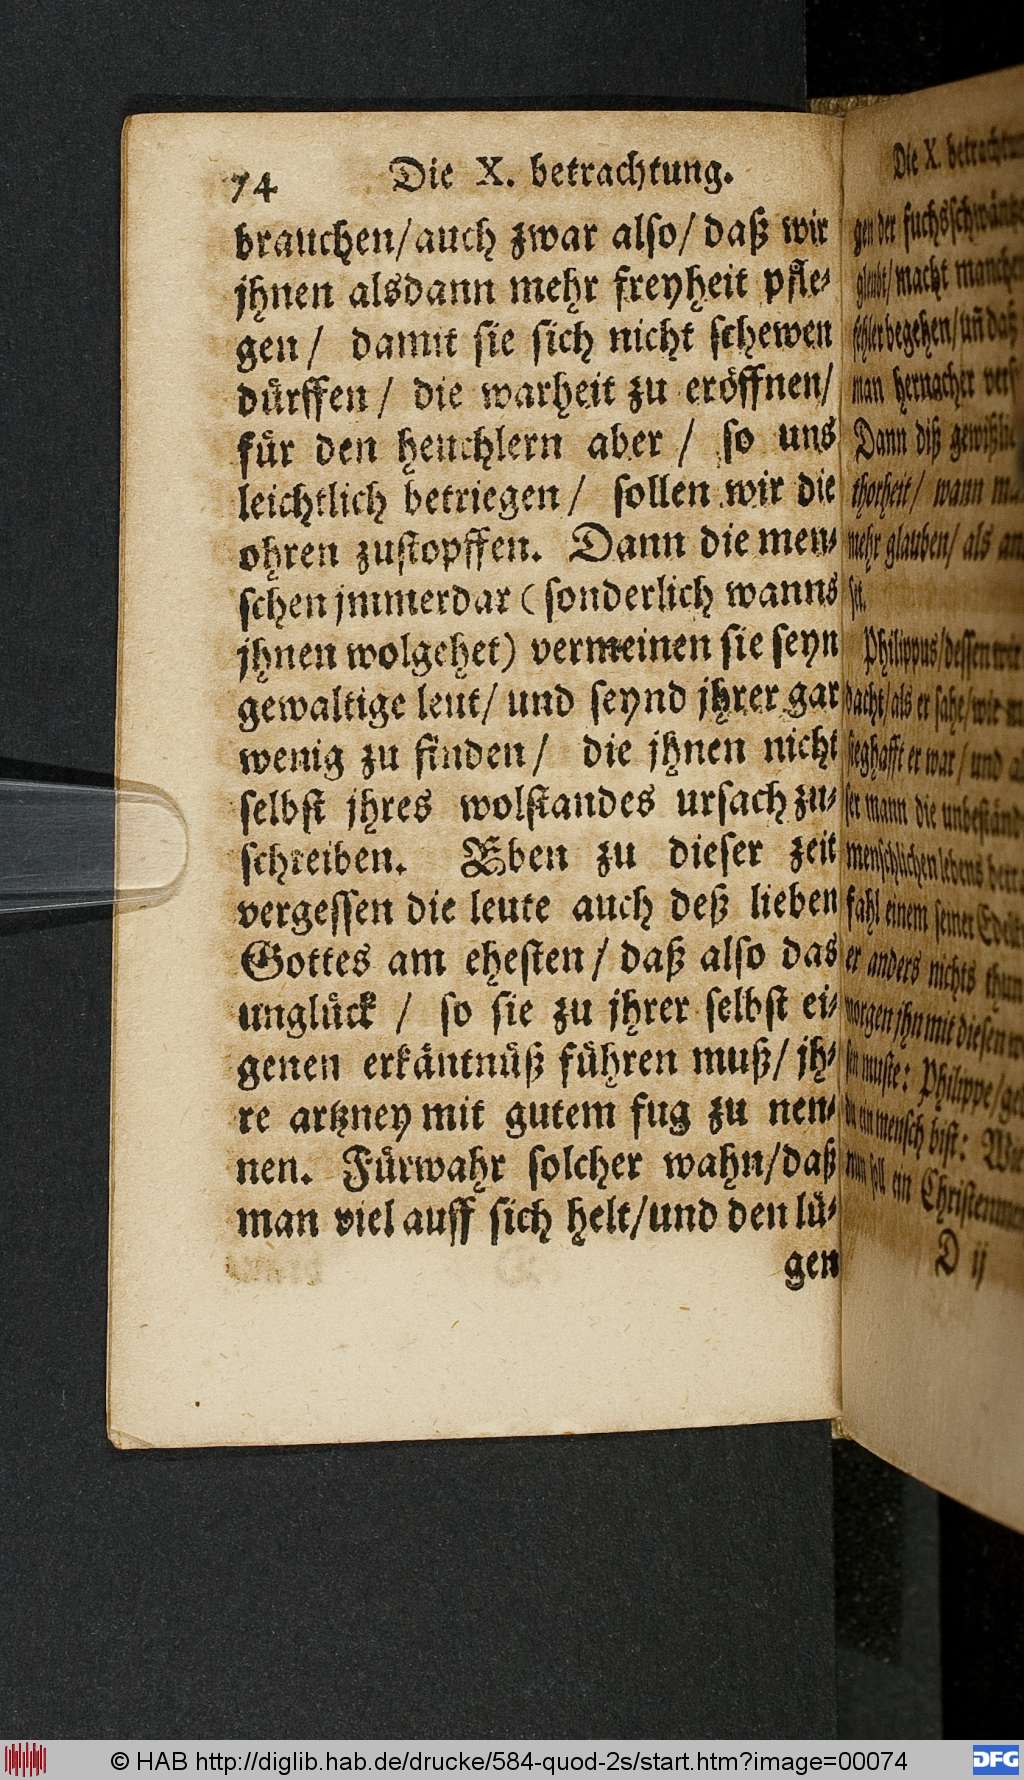 74 Die X. betrachtung.
brauchen/auch zwar also/ daß wir
jhnen alsdann mehr freyheit pfle-
gen/ damit sie sich nicht schewen
dürffen/ die warheit zu eröffnen/
für den heuchlern aber / so uns
leichtlich betriegen/ sollen wir die
ohren zustopffen. Dann die men-
schen jmmerdar (sonderlich wanns
jhnen wolgehet) vermeinen sie seyn
gewaltige leut/ und seynd jhrer gar
wenig zu finden/ die jhnen nicht
selbst jhres wolstandes ursach zu-
schreiben. Eben zu dieser zeit
vergessen die leute auch deß lieben
Gottes am ehesten/ daß also das
unglück / so sie zu jhrer selbst ei-
genen erkäntnüß führen muß/ jh-
re artzney mit gutem fug zu nen-
nen. Fürwahr solcher wahn/daß
man viel auff sich helt/und den lü-
gen
Die X.
gen der
glaubt/ macht
fehler begehen/ uñ daß
man hernacher
Dann diß
thorheit/ wann
mehr glauben/ als
sei.
Philippus/dessen wir
dacht/als er sahe/wie
sieghafft er war/ und
ser mann die
menschlichen lebens
fahl einem seiner
er anders nichts thun
morgen jhn mit diesen
sen muste: Philippe/
du ein mensch bist: Wie
nun soll ein
D ij
© HAB http://diglib.hab.de/drucke/584-quod-2s/start.htm?image=00074
DFG